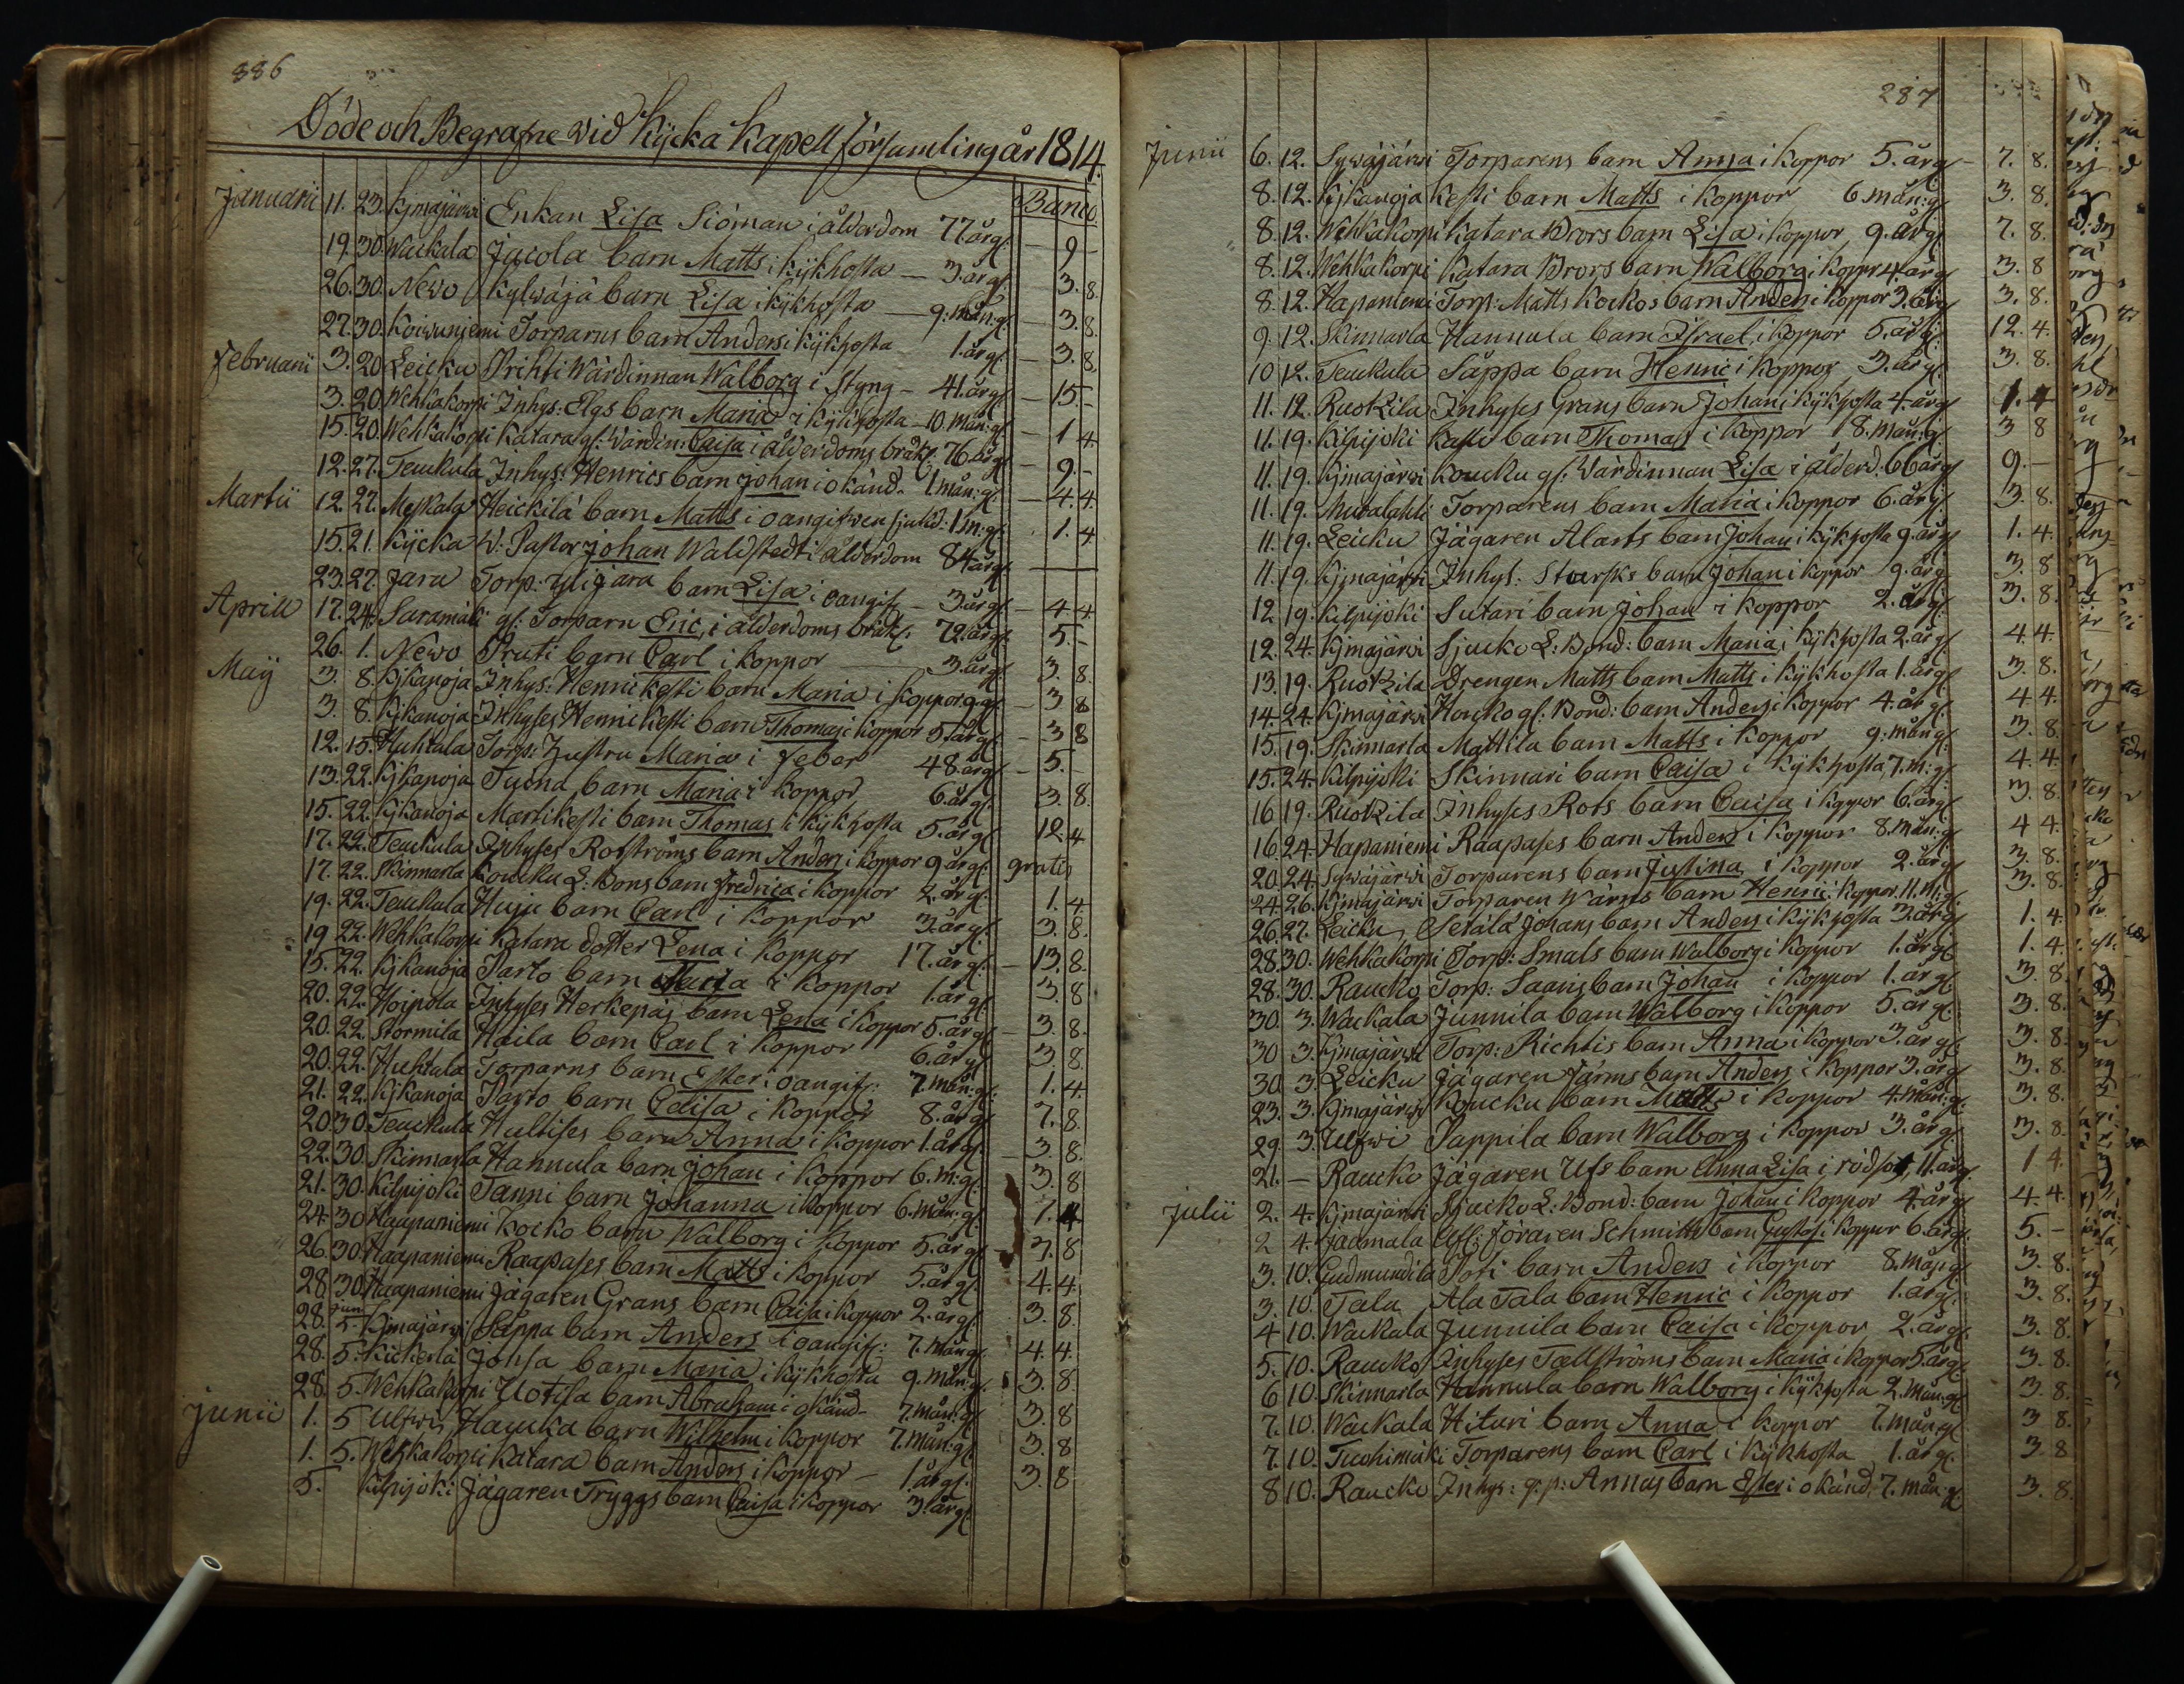 886
Döde och Begrafne wid Kycka Kapell församling år 1814.
Banco
Januarii 11. 23. Kjmajärwi Enkan Lisa Siöman i ålderdom 77. år gl. 9 -
19. 30. Wackala Jacola barn Matts i kikhosta - 3. år gl. 3. 8.
26. 30. Newo Kylwäjä barn Lisa i kikhosta - 9. mån: gl. - 3. 8.
27. 30. Koiwunjemi Torparns barn Anders i kikhosta 1. år gl. - 3. 8.
Februarii 3. 20. Leicku Prihti Wärdinnan Walborg i Styng - 41. år gl. - 15. -
3. 20. Wehkakorpi Inhys: Elgs barn Maria i kikhosta - 10. mån: gl. - 1 4.
15. 20. Wehkakorpi Katara gl: Wärdin: Caisa i ålderdoms bräkl: 76. år gl. - 9. -
12. 27. Teuckula Inhys: Henrics barn Johan i okänd - 1 mån: gl. - 4. 4.
Martii 12. 27. Meskala Heickilä barn Matts i oangifwen sjukd: 1 m: gl. 1. 4
15. 21. Kycka W: Pastor Johan Waldstedt i ålderdom 84 år gl.
23. 27. Jara Torp: Ylijara barn Lisa i oangif - 3. år gl. - 4 4
Aprill 17. 24. Saramäki gl: Torparn Eric, i ålderdoms bräkl: 72. år gl. 5. -
26. 1. Newo Pruti barn Carl i koppor 3. år gl. 3. 8.
Maij 3. 8. Kjkanoja Inhys: Henni Kesti barn Maria i koppor 9. gl. - 3 8
3. 8. Kjkanoja Inhyses Henni Kesti barn Thomas i koppor 5. år gl. - 3 8
12. 15. Huhtala Torp: hustru Maria i feber 48. år gl. - 5. -
13. 22. Kjkanoja Tuona barn Maria i koppor 6. år gl. 3. 8.
15. 22. Kjkanoja Martikesti barn Thomas i kikhosta 5. år gl. 12 4
17. 22. Teuckula Inhyses Roströms barn Anders i koppor 9 år gl. gratis
17. 22. Skinnarla Koucku L: Bons barn Fredrica i koppor 2. år gl. 1. 4
19. 22. Teuckula Huju barn Carl i koppor 3. år gl. 3. 8.
19 22. Wehkakorpi Katara dotter Lena i koppor 17. år gl. - 13. 8.
15. 22. Kjkanoja Parto barn Maria i koppor 1. år gl. 3. 8
20. 22. Hoipola Inhyses Herkepäj barn Lena i koppor 5. år gl. - 3. 8.
20. 22. Normila Haila barn Carl i koppor 6. år gl. 3 8.
20. 22. Huhtala Torparns barn Ester i oangif: 7. mån: gl. 1. 4.
21. 22. Kjkanoja Parto barn Caisa i koppor 8. år gl. 7. 8
20 30. Teuckula Hultises barn Anna i koppor 1. år gl. - 3 8.
22. 30. Skinnarla Hannula barn Johan i koppor 6. m: gl. 3. 8
21. 30. Kilpijoki Tanni barn Johanna i koppor 6. mån: gl. 7. 4
24 30 Haapaniemi Kocko barn Walborg i koppor 5. år gl. 7. 8
26. 30. Haapaniemi Raapases barn Matts i koppor 5. år gl. 4. 4
28 30. Haapaniemi Jägaren Grans barn Caisa i koppor 2. år gl. 3. 8.
28. jun 5. Kjmajärwi Säppa barn Anders i oangif: 7. mån gl. 4. 4.
28. 5. Kickerlä Johla barn Maria i kikhosta 9. mån: gl. 3. 8
28. 5. Wehkakorpi Uotila barn Abraham i okänd - 7. mån: gl. 3. 8
Junii 1. 5 Ulfwi Haucka barn Wilhelm i koppor 7. mån: gl. 3. 8
1. 5. Wehkakorpi Katara barn Anders i koppor - 1. år gl. 3. 8
5. Kilpijoki Jägaren Tryggs barn Caisa i koppor 3. år gl.
287
Junii 6. 12. Sywäjärwi Torparens barn Anna i koppor 5. år gl. - 7. 8.
8. 12. Kjkanoja Kesti barn Matts i koppor 6. mån: gl. 3. 8.
8. 12. Wehkakorpi Katara Brors barn Lisa i koppor 9. år gl. 7. 8.
8. 12. Wehkakorpi Katara Brors barn Walborg i koppr 4. år gl. 3. 8
8. 12. Hapaniemi Torp: Matts Kockos barn Anders i koppor 3. år gl. 3. 8.
9. 12. Skinnarla Hannula barn Israel i koppor 5. år gl. 12. 4.
10 12. Teuckula Säppa barn Henric i koppor 3. år gl. 3. 8.
11. 12. Ruokila Inhyses Grans barn Johan i kikhosta 4. år gl. 1. 4
11. 19. Kilpijoki Kassu barn Thomas i koppor 8. mån: gl. 3 8
11. 19. Kjmajärwi Koucku gl: Wärdinnan Lisa i ålderd: 66 år gl. 9. -
11. 19. Torparens barn Maria i koppor 6. år gl. 3. 8.
11. 19. Leicku Jägaren Alarts barn Johan i kikhosta 9. år gl. 1. 4.
11. 19. Kjmajärwi Inhys: Sturfks barn Johan i koppor 9. år gl. 3. 8
12. 19. Kilpijoki Sutari barn Johan i koppor 2. år gl. 3. 8.
12. 24. Kjmajärwi Sjucko L: Bond: barn Maria i kikhosta 2. år gl. 4 4.
13. 19. Ruokila Drengen Matts barn Matts i kikhosta 1. år gl. 3. 8.
14. 24. Kjmajärwi Koucko gl: Bond: barn Anders i koppor 4. år gl. 4 4.
15. 19. Skinnarla Mattila barn Matts i koppor 9. mån gl. 3. 8.
15. 24. Kilpijoki Skinnari barn Caisa i kikhosta 7. m: gl. 4. 4.
16 19. Ruokila Inhyses Rots barn Caisa i koppor 6. år gl. 3. 8.
16 24. Hapaniemi Raapases barn Anders i koppor 8. mån: gl. 4 4.
20. 24. Sywäjärwi Torparens barn Justina i koppor 2. år gl. 3. 8.
24. 26. Kjmajärwi Torparen Wärns barn Henric i koppor. 11. m: gl. 3. 8.
26. 27. Leicku Setälä Johans barn Anders i kikhosta 3. år gl. 1. 4.
28. 30. Wehkakorpi Torp: Smals barn Walborg i koppor 1. år gl. 1. 4.
28. 30. Raucko Torp: Saaris barn Johan i koppor 1. år gl. 3. 8.
30 3. Wackala Junnila barn Walborg i koppor 5. år gl. 3. 8.
30 3. Kjmajärwi Torp: Richtis barn Anna i koppor 3. år gl. 3. 8.
30. 3. Leicku Jägaren Järms barn Anders i koppor 3. år gl. 3. 8.
23. 3. Kjmajärwi Koucku barn Matts i koppor 4. mån: gl. 3. 8.
29. 3. Ulfwi Pappila barn Walborg i koppor 3. år gl. 3. 8.
21. - Raucko Jägaren Ufs barn Anna Lisa i rödsot, 11. år gl. 1 4.
Julii 2. 4. Kjmajärwi Sjucko L: Bond: barn Johan i koppor 4. år gl. 4. 4.
2 4. Jaamala Schmitts barn Gustaf i koppor 6. år gl. 5. -
3. 10. Gudmundila Posi barn Anders i koppor 8. mån gl. 3. 8.
3. 10. Tala Ala Tala barn Henric i koppor 1. år gl. 3. 8.
4 10. Wackala Junnila barn Caisa i koppor 2. år gl. 3. 8.
5. 10. Raucko Inhyses Tallströms barn Maria i koppor 5. år gl. 3. 8.
6 10. Skinnarla Hannula barn Walborg i kikhosta 2. mån: gl. 3. 8.
7. 10. Wackala Hituri barn Anna i koppor 7. mån: gl. 3 8.
7. 10. Tuohimäki Torparens barn Carl i kikhosta 1. år gl. 3. 8
8 10. Raucko Inhys: q: p: Annas barn Ester i okänd, 7. mån: gl. 3. 8.